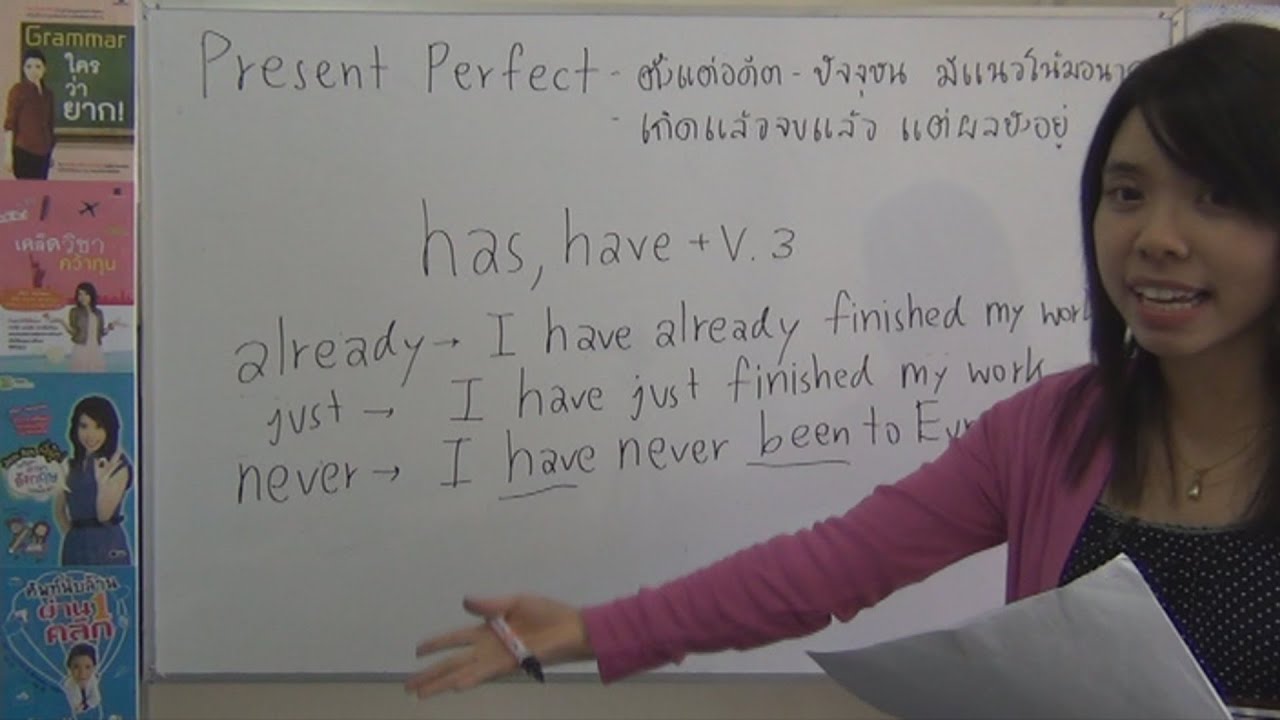 Grammar
ใคร
ว่า
ยาก!
เคล็ดวิชา
คว้าทุน
อังกฤษ
ศัพท์พันล้าน
ผ่าน 1
คลิก
Present Perfect - ตั้งแต่อดีต - ปัจจุบัน มีแนวโน้ม
- เกิดแล้วจบแล้ว แต่ผลยังอยู่
has, have + V. 3
already → I have already finished my work
just → I have just finished my work
never → I have never been to